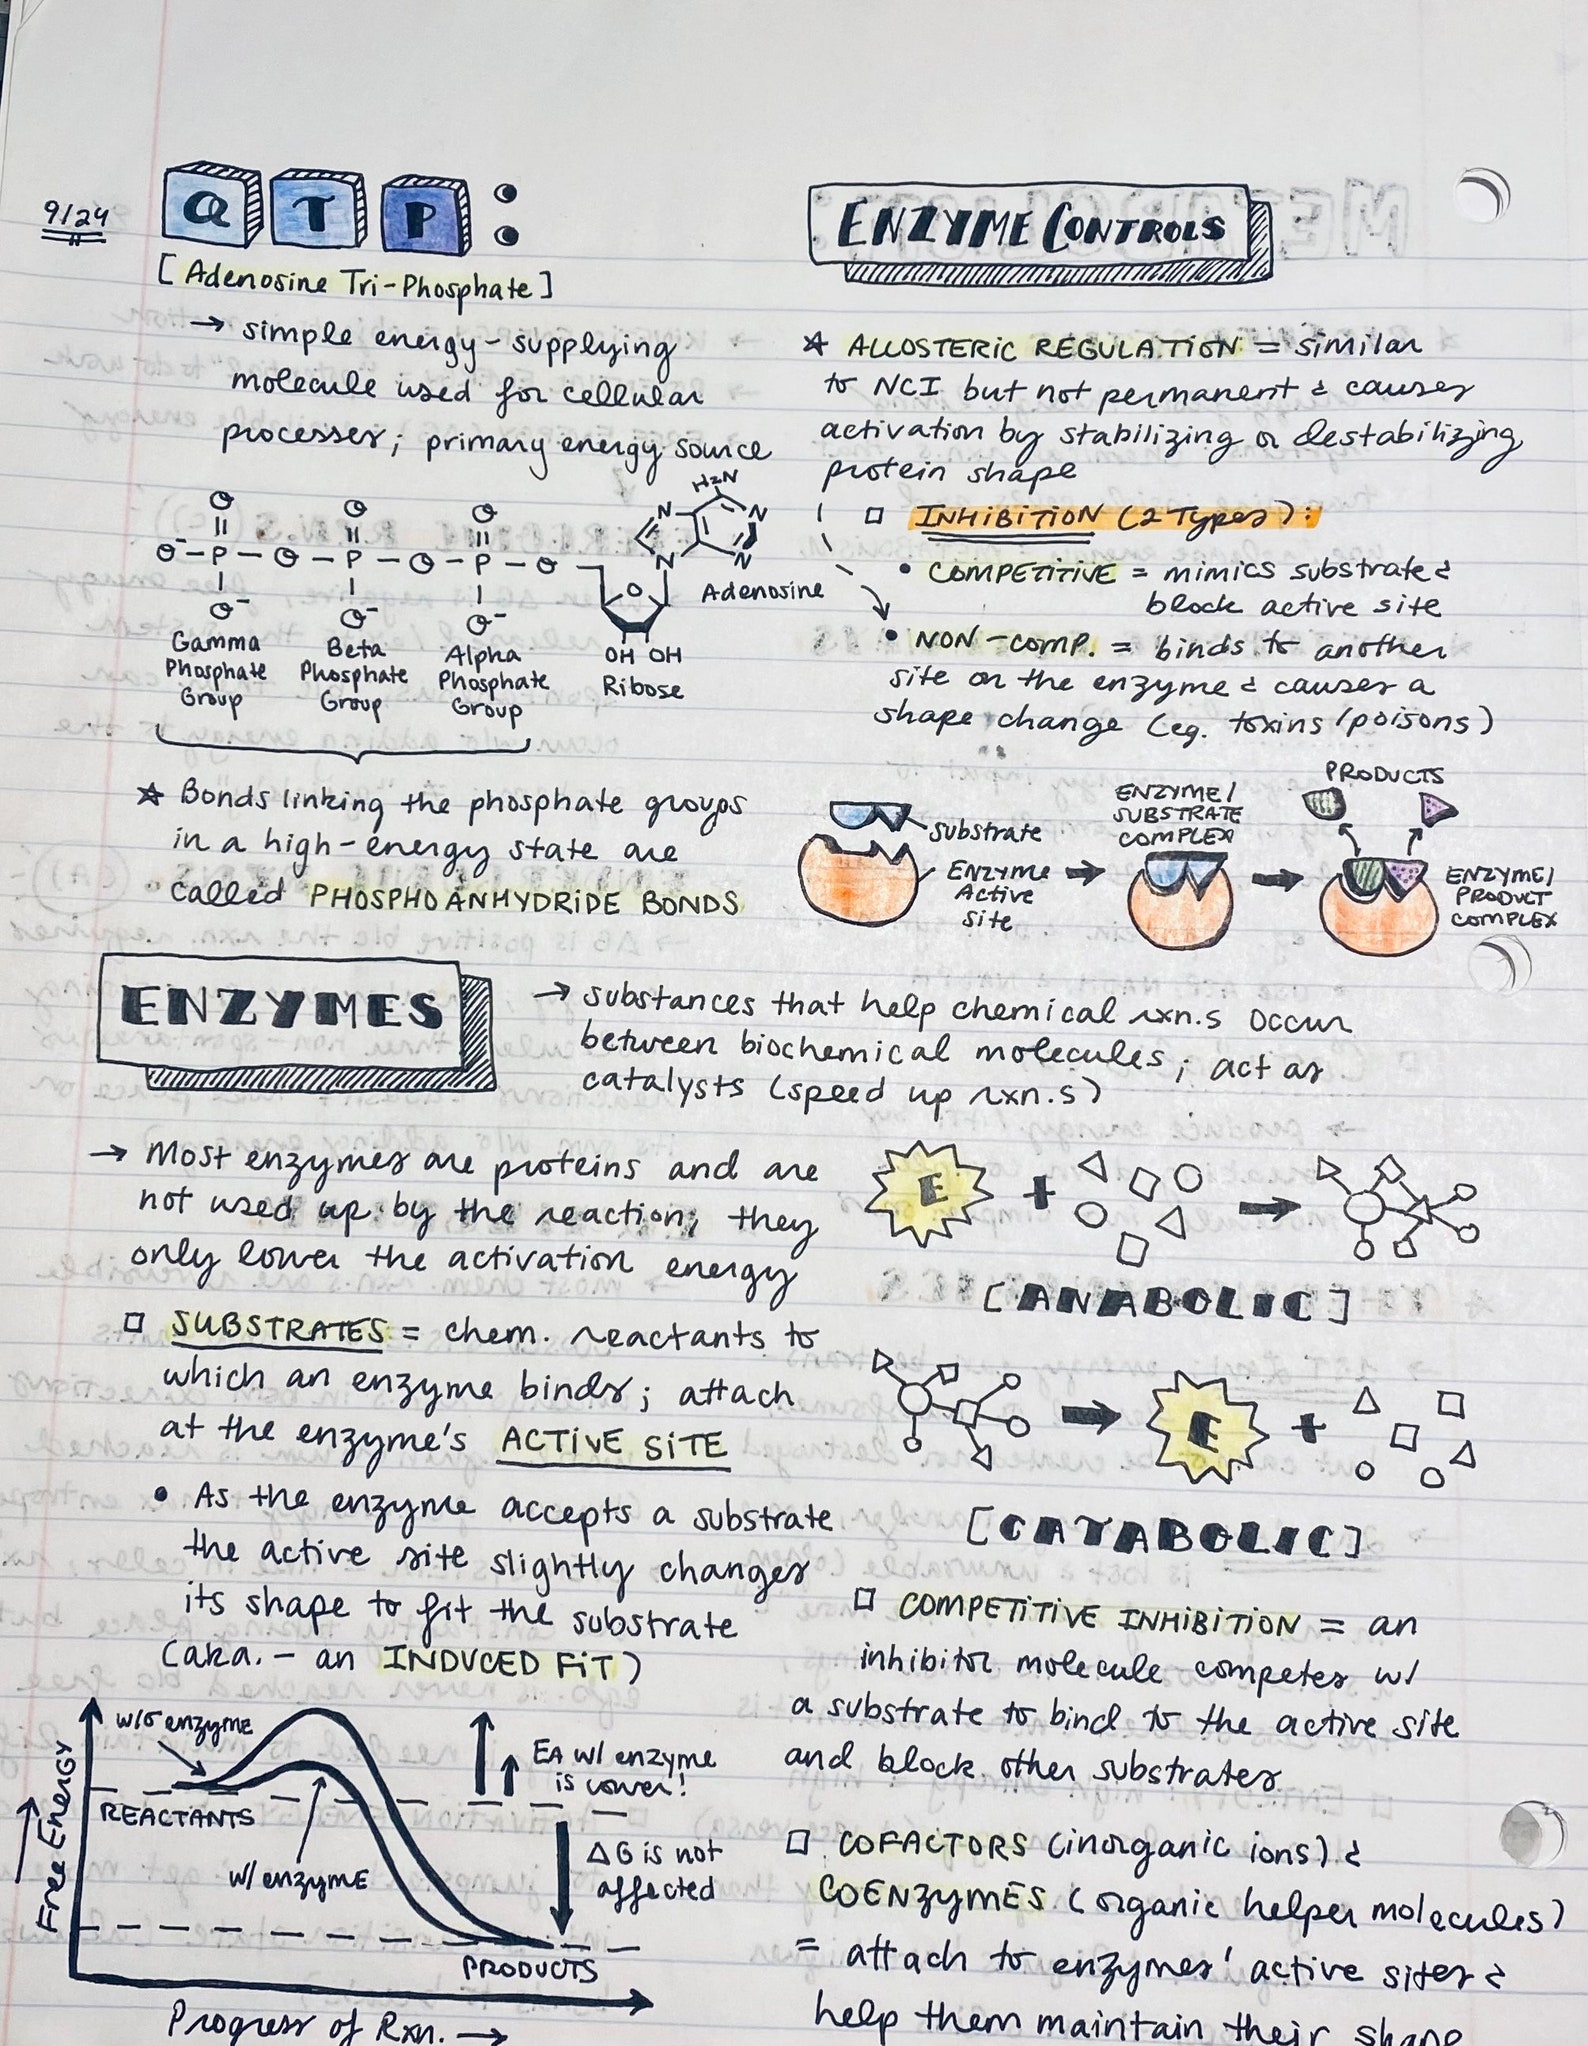 9/24
ATP:
[Adenosine Tri-Phosphate]
→ simple energy-supplying
molecule used for cellular
processes; primary energy source
H₂N
O O O N N
O⁻-P-O-P-O-P-O N N
O⁻ O⁻ O⁻ O Adenosine
OH OH
Gamma Phosphate Group
Beta Phosphate Group
Alpha Phosphate Group
Ribose
☆ Bonds linking the phosphate groups
in a high-energy state are
called PHOSPHOANHYDRIDE BONDS
ENZYMES
→ substances that help chemical rxn.s occur
between biochemical molecules; act as
catalysts (speed up rxn.s)
→ Most enzymes are proteins and are
not used up by the reaction; they
only lower the activation energy
□ SUBSTRATES = chem. reactants to
which an enzyme binds; attach
at the enzyme's ACTIVE SITE
• As the enzyme accepts a substrate
the active site slightly changes
its shape to fit the substrate
(aka. - an INDUCED FIT)
Free Energy
w/o enzyme
REACTANTS
w/ enzyme
EA w/ enzyme
is lower!
ΔG is not
affected
PRODUCTS
Progress of Rxn. →
ENZYME CONTROLS
☆ ALLOSTERIC REGULATION = similar
to NCI but not permanent & causes
activation by stabilizing or destabilizing
protein shape
□ INHIBITION (2 Types):
• COMPETITIVE = mimics substrate &
block active site
• NON-COMP. = binds to another
site on the enzyme & causes a
shape change (eg. toxins/poisons)
substrate
ENZYME
Active
Site
ENZYME/
SUBSTRATE
COMPLEX
PRODUCTS
ENZYME/
PRODUCT
COMPLEX
E +
[ANABOLIC]
E +
[CATABOLIC]
□ COMPETITIVE INHIBITION = an
inhibitor molecule competes w/
a substrate to bind to the active site
and block other substrates
□ COFACTORS (inorganic ions) &
COENZYMES (organic helper molecules)
= attach to enzymes' active sites &
help them maintain their shape